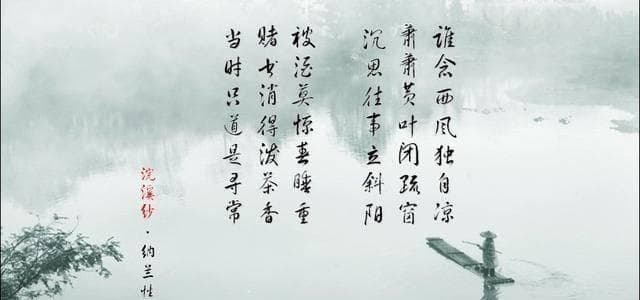 谁念西风独自凉
萧萧黄叶闭疏窗
沉思往事立斜阳
被酒莫惊春睡重
赌书消得泼茶香
当时只道是寻常
浣溪纱·纳兰性